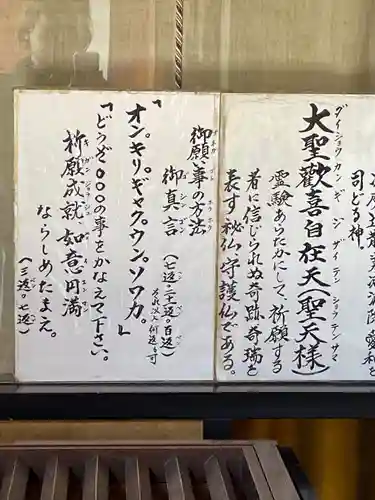 司どる神。
大聖歓喜自在天(聖天様)
ダイショウカンギジザイテン ショウテンサマ
霊験あらたかにして、祈願する
者に信じられぬ奇跡、奇瑞を
表す秘仏、守護仏である。
御願い事の方法
御真言(七返。二十一返。百返)
それ以上何返も可
「オン。キリ。ギャク。ウン。ソワカ。」
「どうぞ〇〇〇の事をかなえて下さい。
祈願成就、如意円満
キガンジョウジュ ニョイエンマン
ならしめたまえ。
(三返。七返)